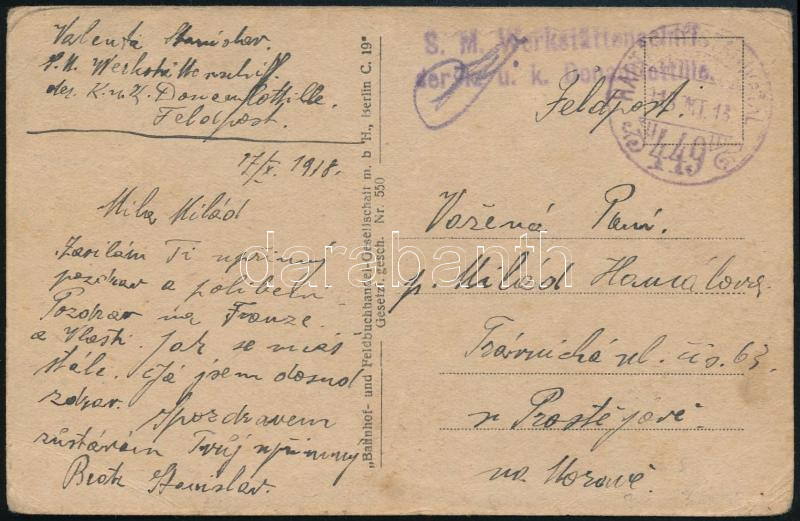 Valenta Stanislav.
S. M. Werkstättenschiff
der. K. u. K. Donauflottille.
Feldpost.
17/X. 1918.
Milá Milád
Zasílám Ti upřímný
pozdrav a políbení
Pozdrav na Franze
a Vlasti. Jak se máš
stále. Já jsem dosud
zdráv. S pozdravem
zůstávám Tvůj upřímný
Bratr Stanislav.
„Bahnhof- und Feldbuchhandel-Gesellschaft m. b H., Berlin C. 19"
Gesetzl. gesch. Nr. 550
S. M. Werkstättenschiff
der k. u. k. Donauflottille.
449
Feldpost.
Vážená Paní.
p. Milád Hanálová
Trávnická ul. čís. 63.
v Prostějově.
na Moravě.
darabanth